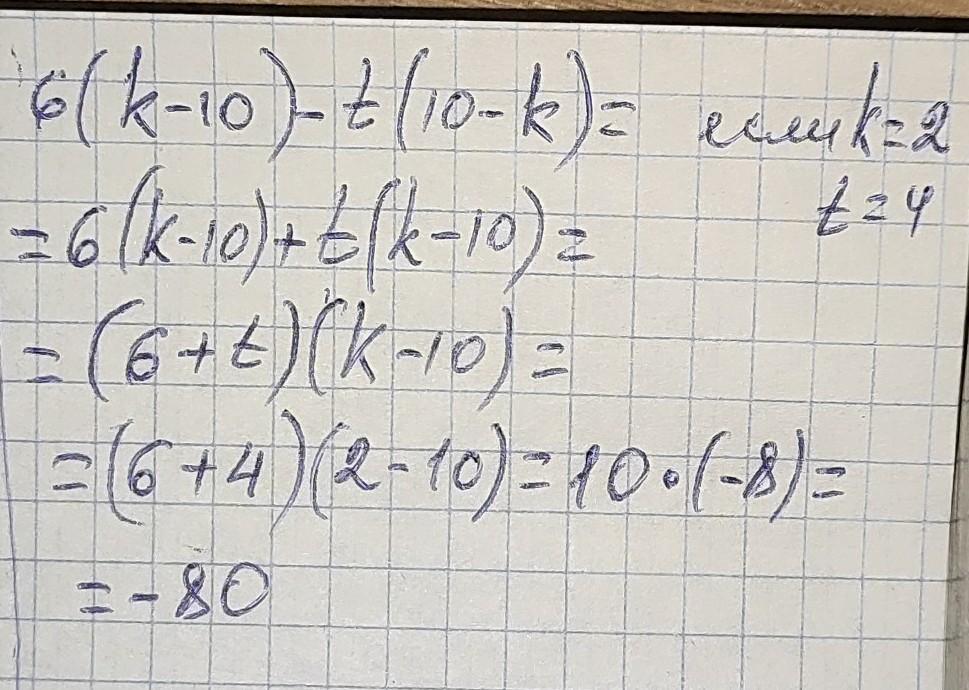 6(k-10)-t(10-k)= если k=2
t=4
=6(k-10)+t(k-10)=
=(6+t)(k-10)=
=(6+4)(2-10)=10·(-8)=
=-80